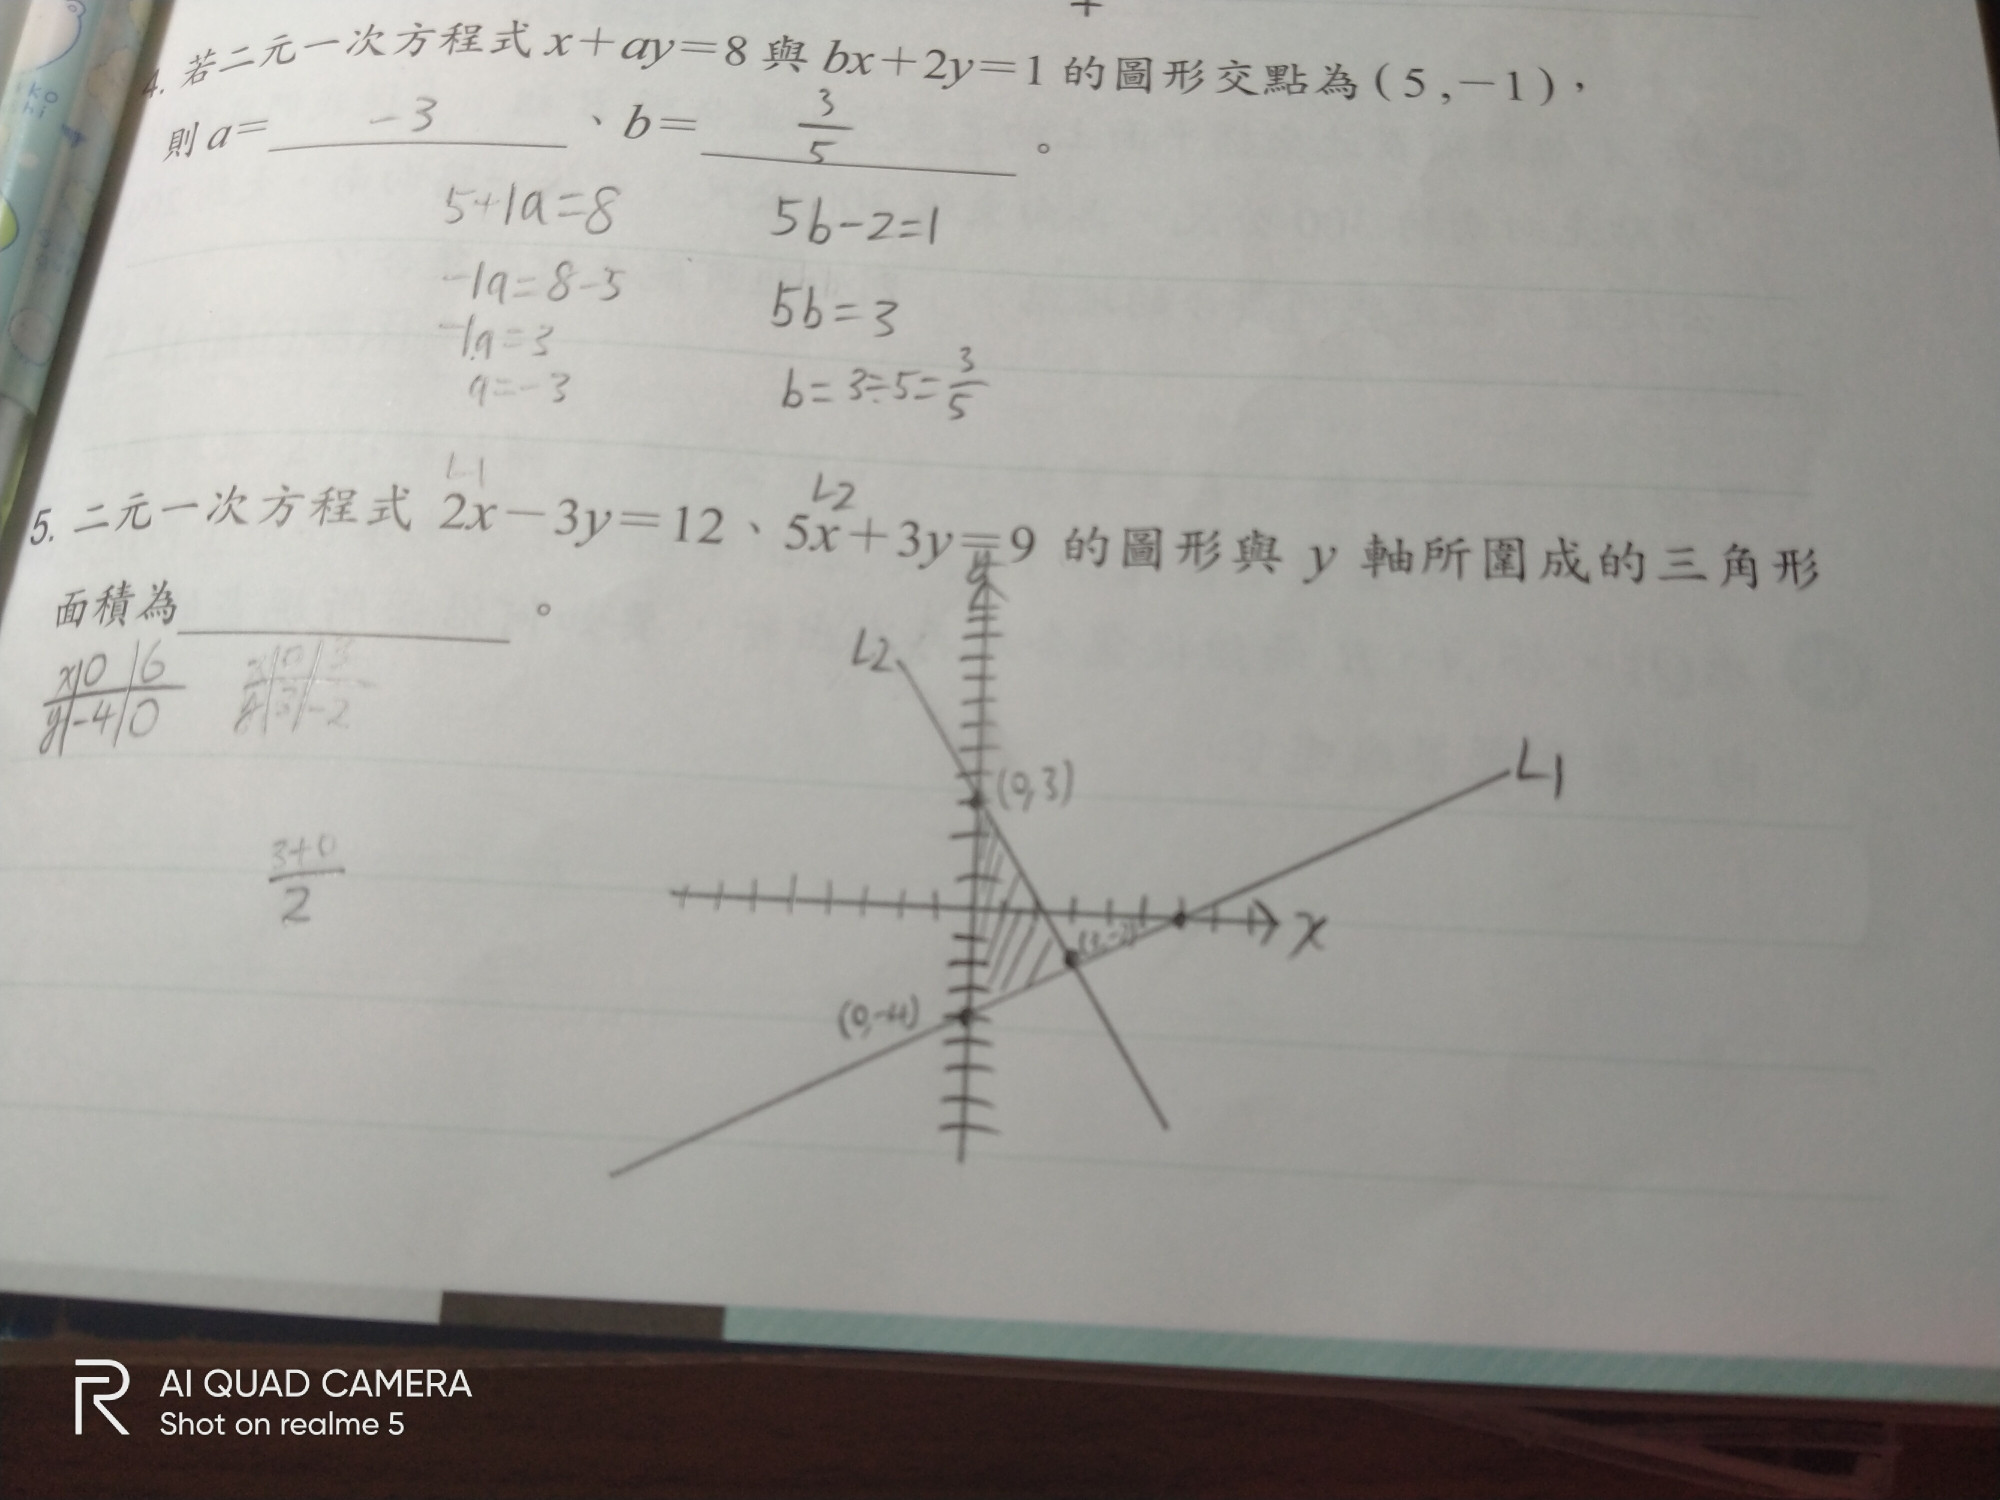 4. 若二元一次方程式 x+ay=8 與 bx+2y=1 的圖形交點為(5,-1),
則 a= -3 、b= 3/5 。
5+1a=8
-1a=8-5
-1a=3
a=-3
5b-2=1
5b=3
b=3÷5=3/5
L1
L2
5. 二元一次方程式 2x-3y=12、5x+3y=9 的圖形與 y 軸所圍成的三角形
面積為 。
x|0|6
y|-4|0
x|0|3
y|3|-2
3+0/2
y
L2
(0,3)
L1
x
(3,-2)
(0,-4)
AI QUAD CAMERA
Shot on realme 5